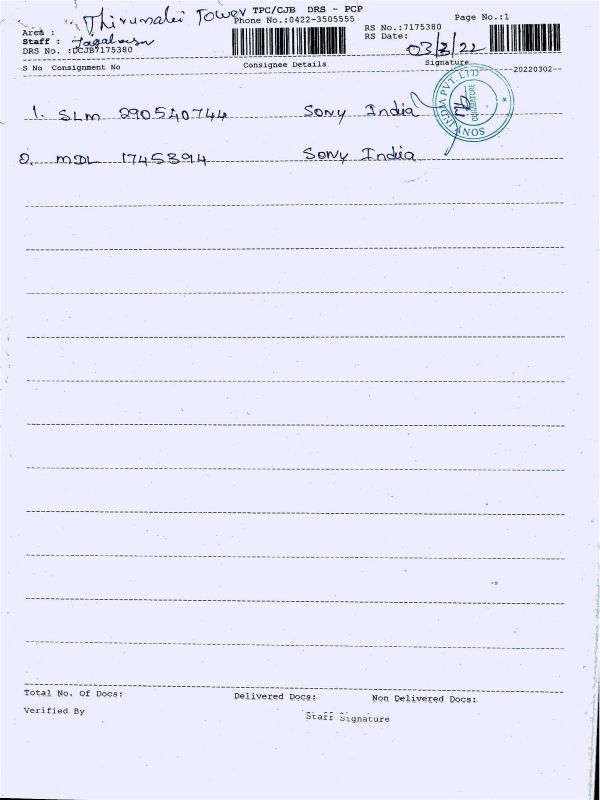 Thirumalai Tower TPC/CJB DRS - PCP
Phone No.:0422-3505555
Page No.:1
Area :
Staff :
DRS No. :DCJB7175380
RS No.:7175380
RS Date: 03/3/22
S No Consignment No Consignee Details Signature
--20220302--
1. SLM 290540744 Sony India
SONY INDIA PVT. LTD
COIMBATORE
2. MDL 1745394 Sony India
Total No. Of Docs: Delivered Docs: Non Delivered Docs:
Verified By Staff Signature